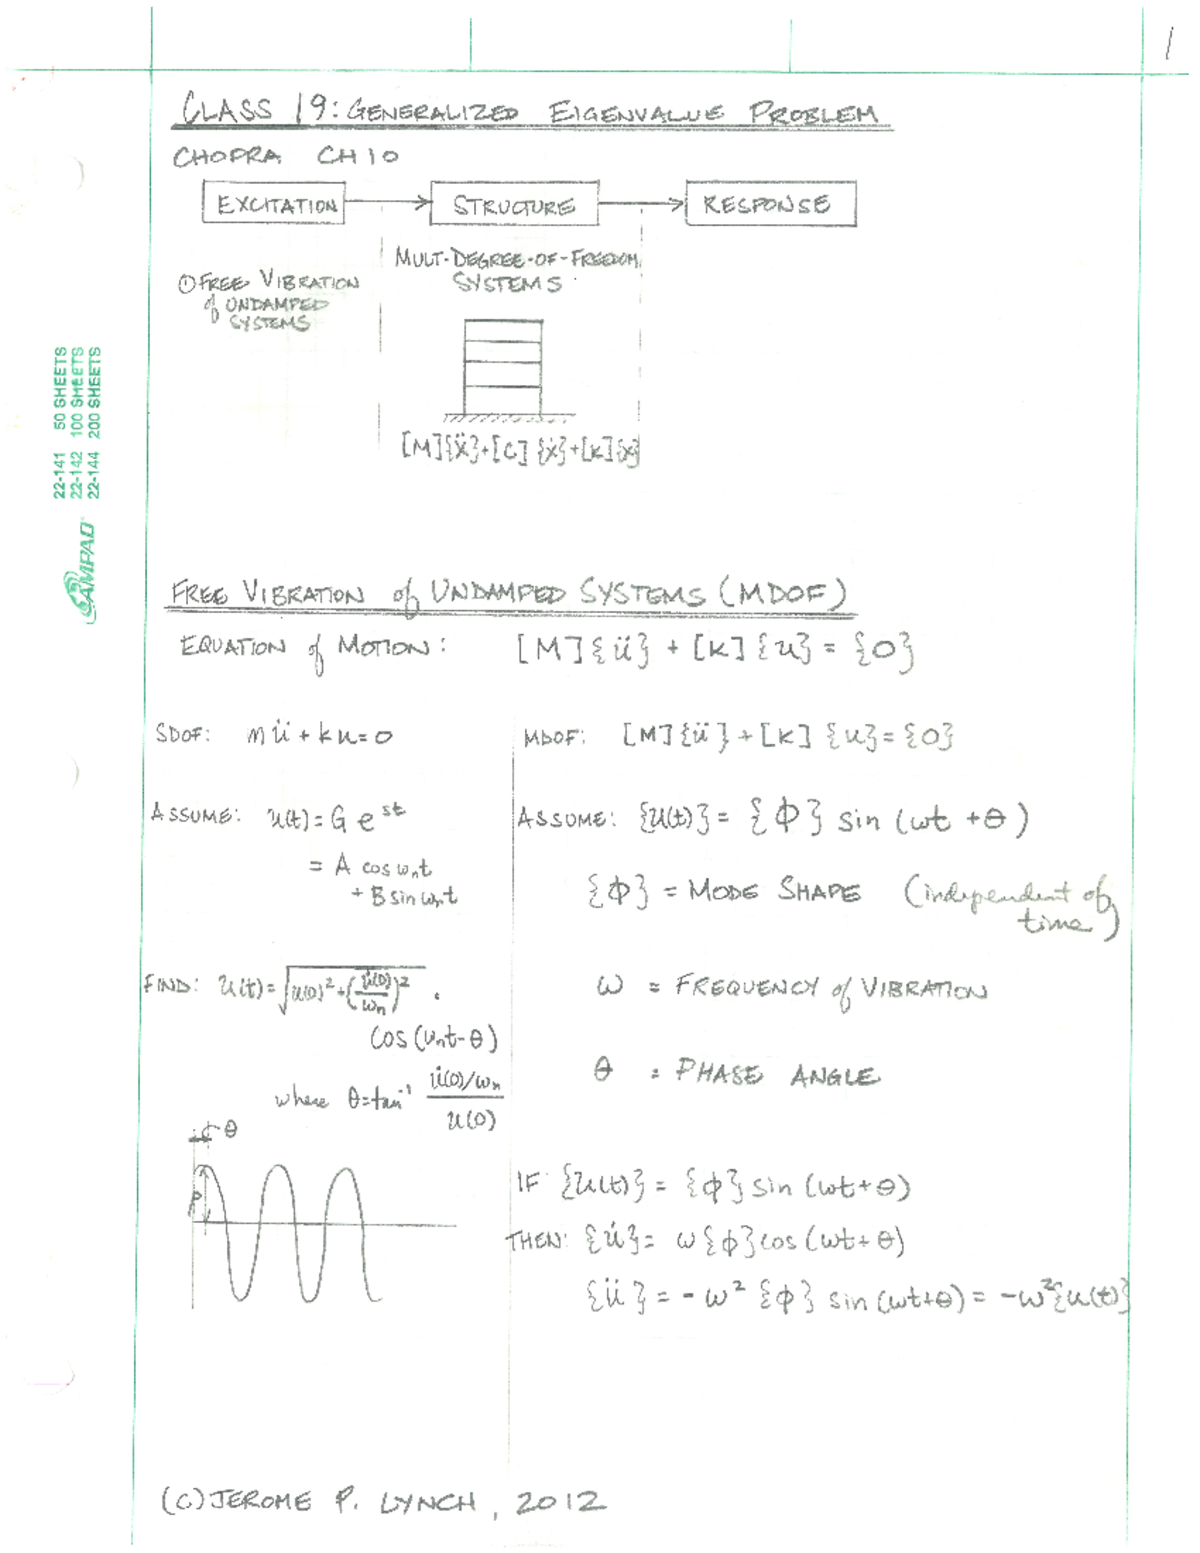 1
CLASS 19: GENERALIZED EIGENVALUE PROBLEM
CHOPRA CH 10
EXCITATION → STRUCTURE → RESPONSE
MULT-DEGREE-OF-FREEDOM
SYSTEMS
① FREE VIBRATION
of UNDAMPED
SYSTEMS
[M]{ẍ}+[C]{ẋ}+[K]{x}
22-141 50 SHEETS
22-142 100 SHEETS
22-144 200 SHEETS
AMPAD
FREE VIBRATION of UNDAMPED SYSTEMS (MDOF)
EQUATION of MOTION: [M]{ü} + [K]{u} = {0}
SDOF: mü + ku = 0
ASSUME: u(t) = G e^st
= A cos ωnt
+ B sin ωnt
FIND: u(t) = √(u(0)² + (u̇(0)/ωn)²) ·
cos (ωnt - θ)
where θ = tan⁻¹ (u̇(0)/ωn)/u(0)
θ
P
MDOF: [M]{ü} + [K]{u} = {0}
ASSUME: {u(t)} = {φ} sin (ωt + θ)
{φ} = MODE SHAPE (independent of
time)
ω = FREQUENCY of VIBRATION
θ = PHASE ANGLE
IF {u(t)} = {φ} sin (ωt + θ)
THEN: {u̇} = ω{φ} cos (ωt + θ)
{ü} = - ω² {φ} sin (ωt + θ) = -ω²{u(t)}
(C) JEROME P. LYNCH, 2012